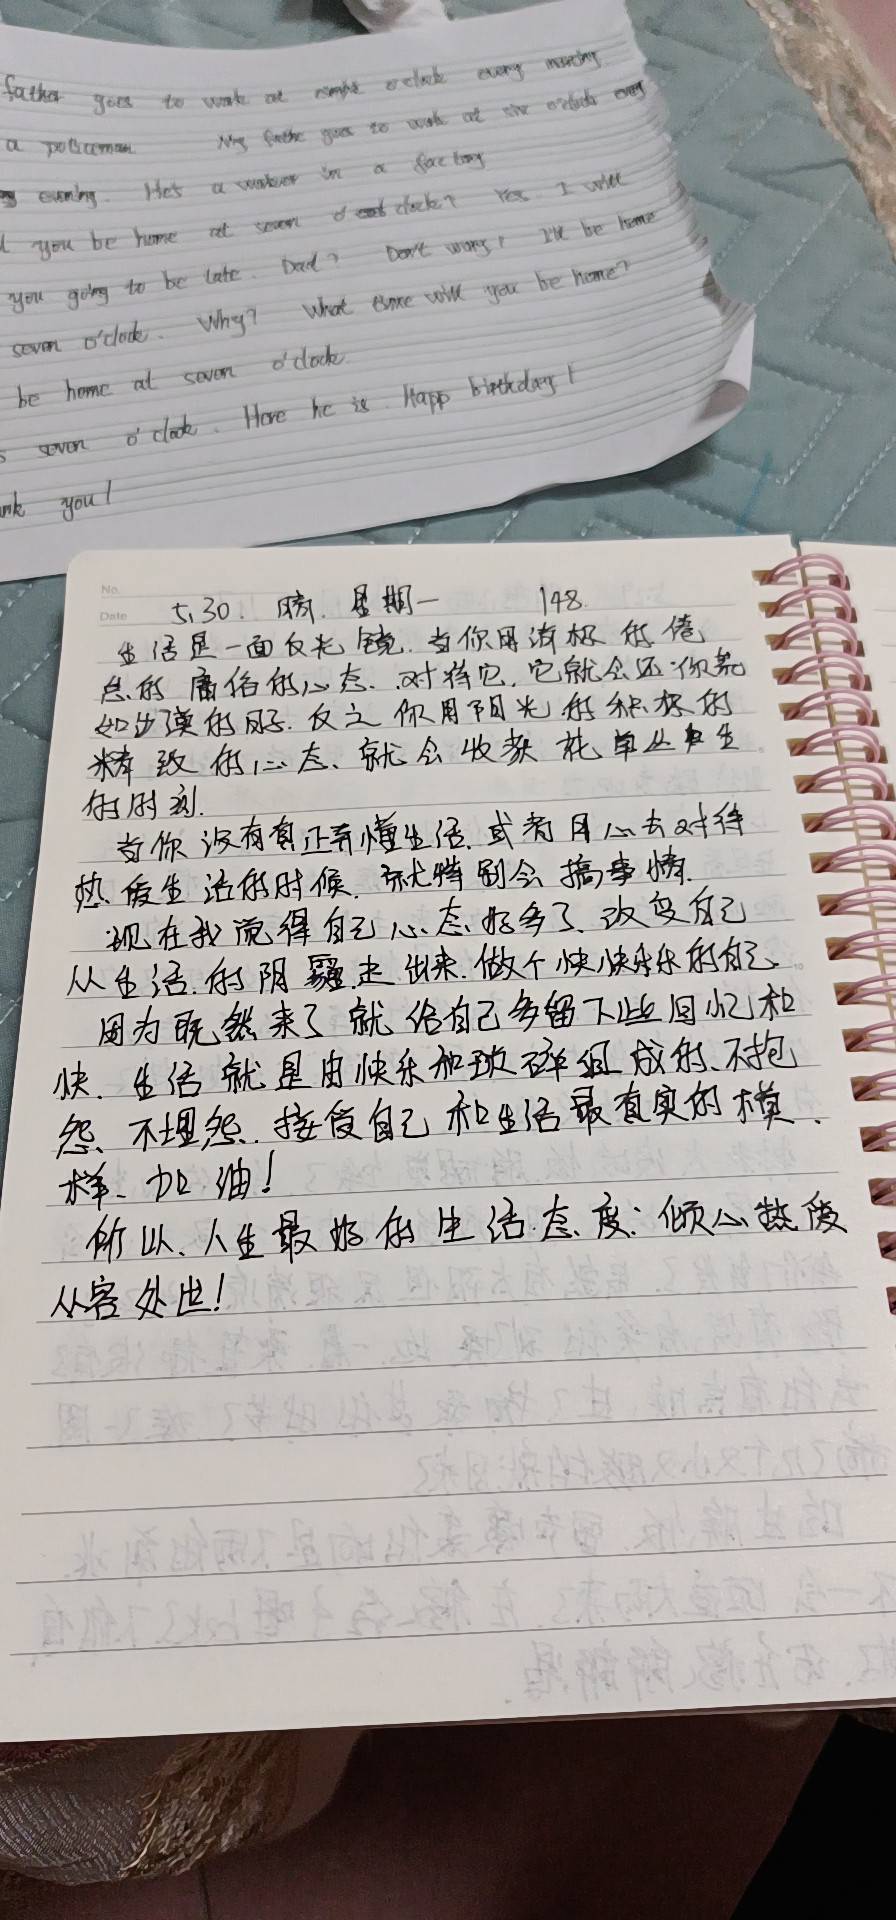 father goes to work at eight o'clock every morning
a policeman My father goes to work at six o'clock every
evening. He's a worker in a factory
you be home at seven o'clock? Yes. I will
you going to be late. Dad? Don't worry! I'll be home
seven o'clock. Why? What time will you be home?
be home at seven o'clock.
s seven o'clock. Here he is. Happ birthday!
ank you!
No.
Date 5.30. 晴. 星期一 148.
生活是一面反光镜. 当你用消极的倦
怠的庸俗的心态. 对待它, 它就会还你
的. 反之你用阳光的积极的
精致的心态、就会收获花草丛生
的时刻.
当你没有真正弄懂生活. 或者用心去对待
热爱生活的时候. 就特别会搞事情.
现在我觉得自己心态好多了、改变自己
从生活.的阴霾走出来.做个快快乐乐的自己.
因为既然来了就给自己多留下些回忆和
快. 生活就是由快乐和琐碎组成的、不抱
怨、不埋怨. 接受自己和生活最真实的模
样、加油!
所以、人生最好的生活.态度: 倾心热爱
从容处世!